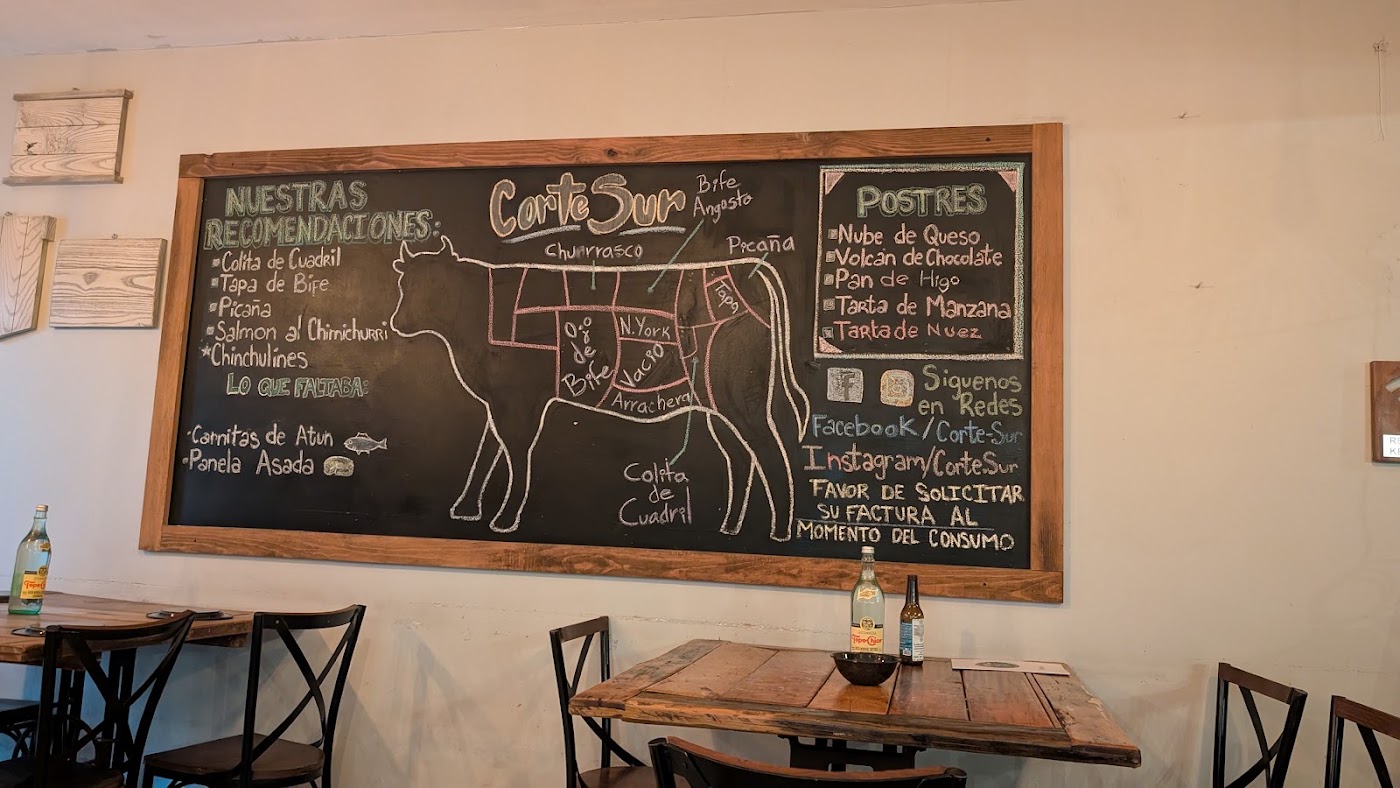 NUESTRAS
RECOMENDACIONES:
Colita de Cuadril
Tapa de Bife
Picaña
Salmon al Chimichurri
Chinchulines
LO QUE FALTABA:
Carnitas de Atun
Panela Asada
Corte Sur
Bife
Angosto
Churrasco
Picaña
Tapa
Ojo
de
Bife
N. York
Vacio
Arrachera
Colita
de
Cuadril
POSTRES
Nube de Queso
Volcán de Chocolate
Pan de Higo
Tarta de Manzana
Tarta de Nuez
f
Siguenos
en Redes
Facebook/Corte-Sur
Instagram/CorteSur
FAVOR DE SOLICITAR
SU FACTURA AL
MOMENTO DEL CONSUMO
Topo Chico
Topo Chico